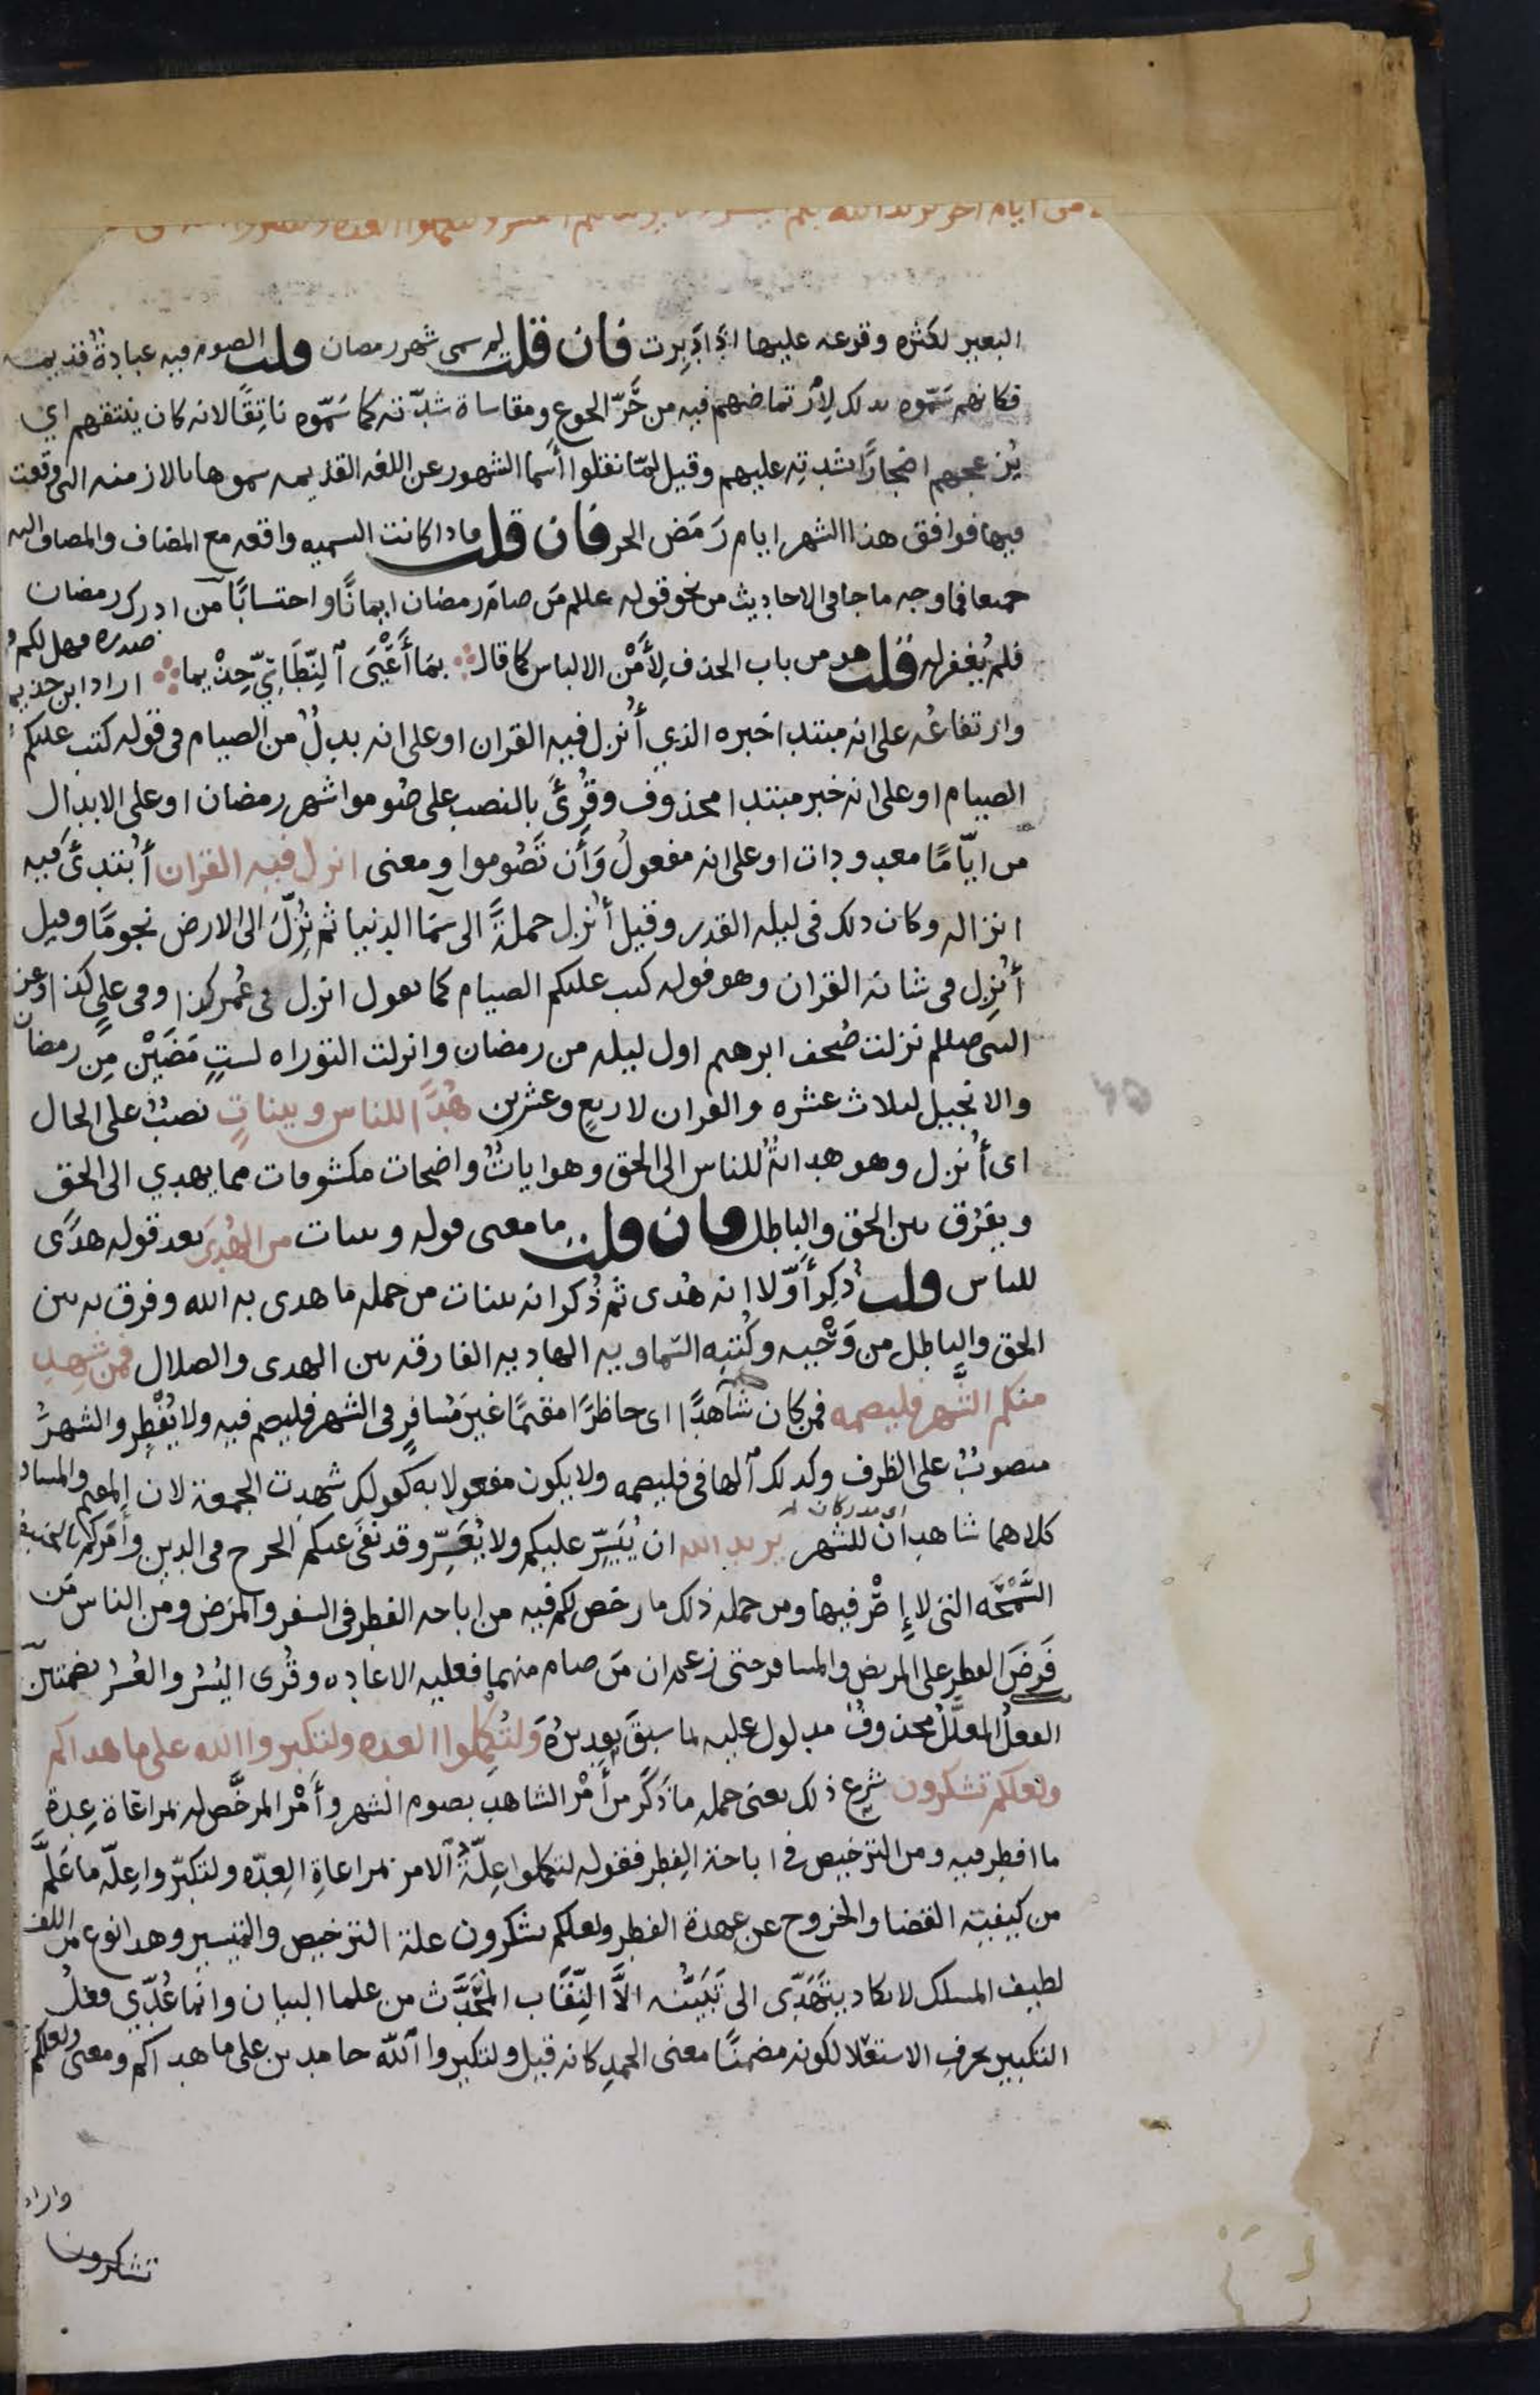 من ايام اخر يريد الله بكم اليسر ولا يريد بكم العسر ولتكملوا العدة ولتكبروا الله على
البعير لكثره وقوعه عليها اذا دَبِرت فان قلت لم سمى شهر رمضان قلت الصوم فيه عبادةٌ قديمه
فكانهم سَمّوه بذلك لِارْتماضهم فيه من حَرّ الجوع ومقاساة شدّته كما سَمّوه ناتِقًا لانه كان ينتقهم اي
يُزعجهم اضجارًا بشدتِه عليهم وقيل لمّا نقلوا أسما الشهور عن اللغه القديمه سموها بالازمنه التى وقعت
فيها فوافق هذا الشهر ايام رَمَض الحر فان قلت فاذا كانت التسميه واقعه مع المضاف والمضاف اليه
جميعا فما وجه ما جا فى الاحاديث من نحو قوله عللم مَن صامَ رمضان ايمانًا واحتسابًا مَن ادرك رمضان
فلم يُغفر له قلت هو من باب الحذف لِأَمْن الالباس كما قال بمَا أَعْيَى ٱلنِّطَاسِيّ حِذْيما اراد ابن حذيم
صدره فهل لكم
وارتفاعُه على انه مبتدا خبره الذي أُنزل فيه القران او على انه بدلٌ من الصيام فى قوله كتب عليكم
الصيام او على انه خبر مبتدا محذوف وقُرِئَ بالنصب على صُوموا شهر رمضان او على الابدال
من ايّامًا معدودات او على انه مفعولُ وَأَن تَصُوموا ومعنى انزل فيه القران أُبتدئَ فيه
انزاله وكان ذلك فى ليله القدر وقيل أُنزل جملةً الى سَمَا الدنيا ثم نُزِّلَ الى الارض نجومًا وقيل
أُنزِل فى شانه القران وهو قوله كتب عليكم الصيام كما تقول انزل فى عُمر كذا وفى علىٍ كذا وعن
النبى صللم نزلت صُحف ابرهيم اول ليله من رمضان وانزلت التوراه لستٍ مَضَيْن مِن رمضان
والانجيل لثلاث عشره والقران لاربعٍ وعشرين هُدًا للناس وبيناتٍ نصبٌ على الحال
اى أُنزل وهو هدايةٌ للناس الى الحق وهو اياتٌ واضحات مكشوفات مما يهدي الى الحق
ويفرُق بين الحق والباطل فان قلت ما معنى قوله وبينات من الهُدَى بعد قوله هدًى
للناس قلت ذُكِر أَوّلا انه هُدى ثم ذُكر انه بينات من جمله ما هدى به الله وفرق به بين
الحق والباطل من وَحْيه وكُتبه السّماويه الهاديه الفارقه بين الهدى والضلال فمن شهد
منكم الشهر فليصمه فمن كان شاهدًا اى حاظرًا مقيمًا غيرَ مُسافرٍ فى الشهر فليصم فيه ولا يُفْطِر والشهرُ
منصوبٌ على الظرف وكذلك ٱلها فى فليصمه ولا يكون مفعولا به كقولك شهدت الجمعة لان المقيم والمسافر
كلاهما شاهدان للشهر يريد الله ان يُيَسِّر عليكم ولا يُعَسِّر وقد نفَى عنكم الحرج فى الدين وأمَركم بالحنيفيه
اى مدركان له
السَّمْحَه التى لا إِصْرَ فيها ومن جمله ذلك ما رخص لكم فيه من اباحه الفطر فى السفر والمرَض ومن الناس مَن
فَرضَ الفطر على المريض والمسافر حتى زعم ان مَن صام منهما فعليه الاعاده وقُرى اليُسُر والعُسُر بضمتين
الفعلُ المعلَّلُ محذوفٌ مدلول عليه بما سبقَ تقديرُه وَلتُكمِلوا العده ولتكبروا الله على ما هداكم
ولعلكم تشكرون شَرع ذلك يعنى جمله ما ذُكَر من أَمْر الشاهد بصوم الشهر وأَمْر المرخَّص له بمراعاة عِدةِ
ما افطر فيه ومن الترخيص فى اباحة الفِطر فقوله لتكملوا عِلّةُ ٱلامر بمراعاةِ العِدّه ولتكبّروا عِلّه ما عُلّم
من كيفيته القضا والخروج عن عهدة الفطر ولعلكم تشكرون علة الترخيص والتيسير وهذا نوع من اللف
لطيف المسلك لا يكاد يَتَهَدّى الى تَبَيُّنه الَّا النِّقَاب المُحَدَّث من علما البيان وانّما عُدّي فعلُ
التكبير بحرف الاستعلا لكونه مضمنًا معنى الحمدِ كانه قيل ولتكبروا ٱللّه حامدين على ما هداكم ومعنى ولعلكم
واراد
تشكرون